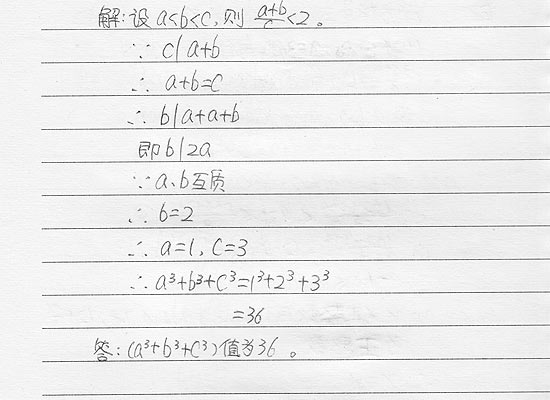 解:设a<b<c,则 (a+b)/c<2。
∵ c|a+b
∴ a+b=c
∴ b|a+a+b
即b|2a
∵a、b互质
∴b=2
∴a=1,c=3
∴a³+b³+c³=1³+2³+3³
=36
答:(a³+b³+c³)值为36。